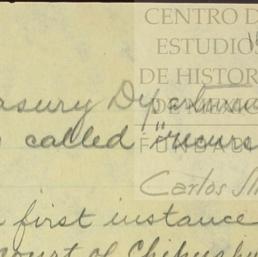 CENTRO D
ESTUDIOS
DE HISTOR
DE MEXIC
FUNDAC
Carlos Sl
asury Departme
called "recurs
first instance
court of Chihuah